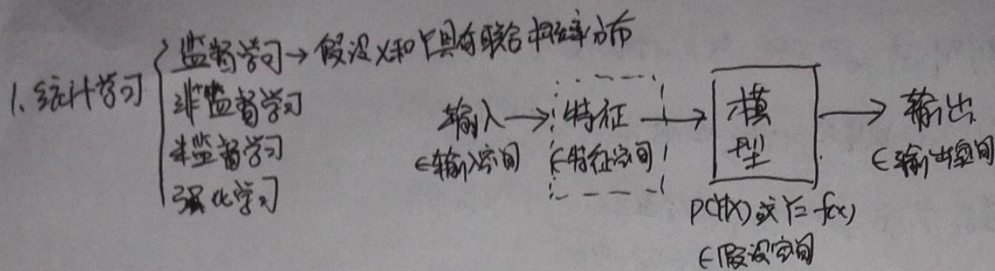 1. 统计学习
监督学习→假设X和Y具有联合概率分布
非监督学习
半监督学习
强化学习
输入→特征→模型→输出
∈输入空间 ∈特征空间 ∈输出空间
P(Y|X)或Y=f(x)
∈假设空间